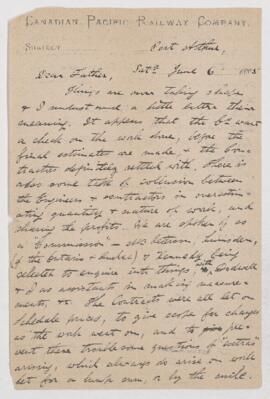 CANADIAN PACIFIC RAILWAY COMPANY.
SUBJECT
Port Arthur,
Sat. June 6 1885
Dear Father,
Things are now taking shape
& I understand a little better their
meaning. It appears that the Co want
a check on the work done, before the
final estimates are made & the Con-
tractors definitely settled with. There is
also some talk of collusion between
the Engineers & contractors in overestim-
ating quantity & nature of work, and
sharing the profits. We are spoken of as
a "Commission" — Lumsden,
(of the Ontario & Quebec) & Kennedy being
selected to enquire into things,
& I as assistants in making measure-
ments, &c. The Contracts were all let on
schedule prices, to give scope for changes
as the work went on, and to pre-
vent those troublesome questions of "extra"
arising, which always do arise on work
let for a lump sum, or by the mile.